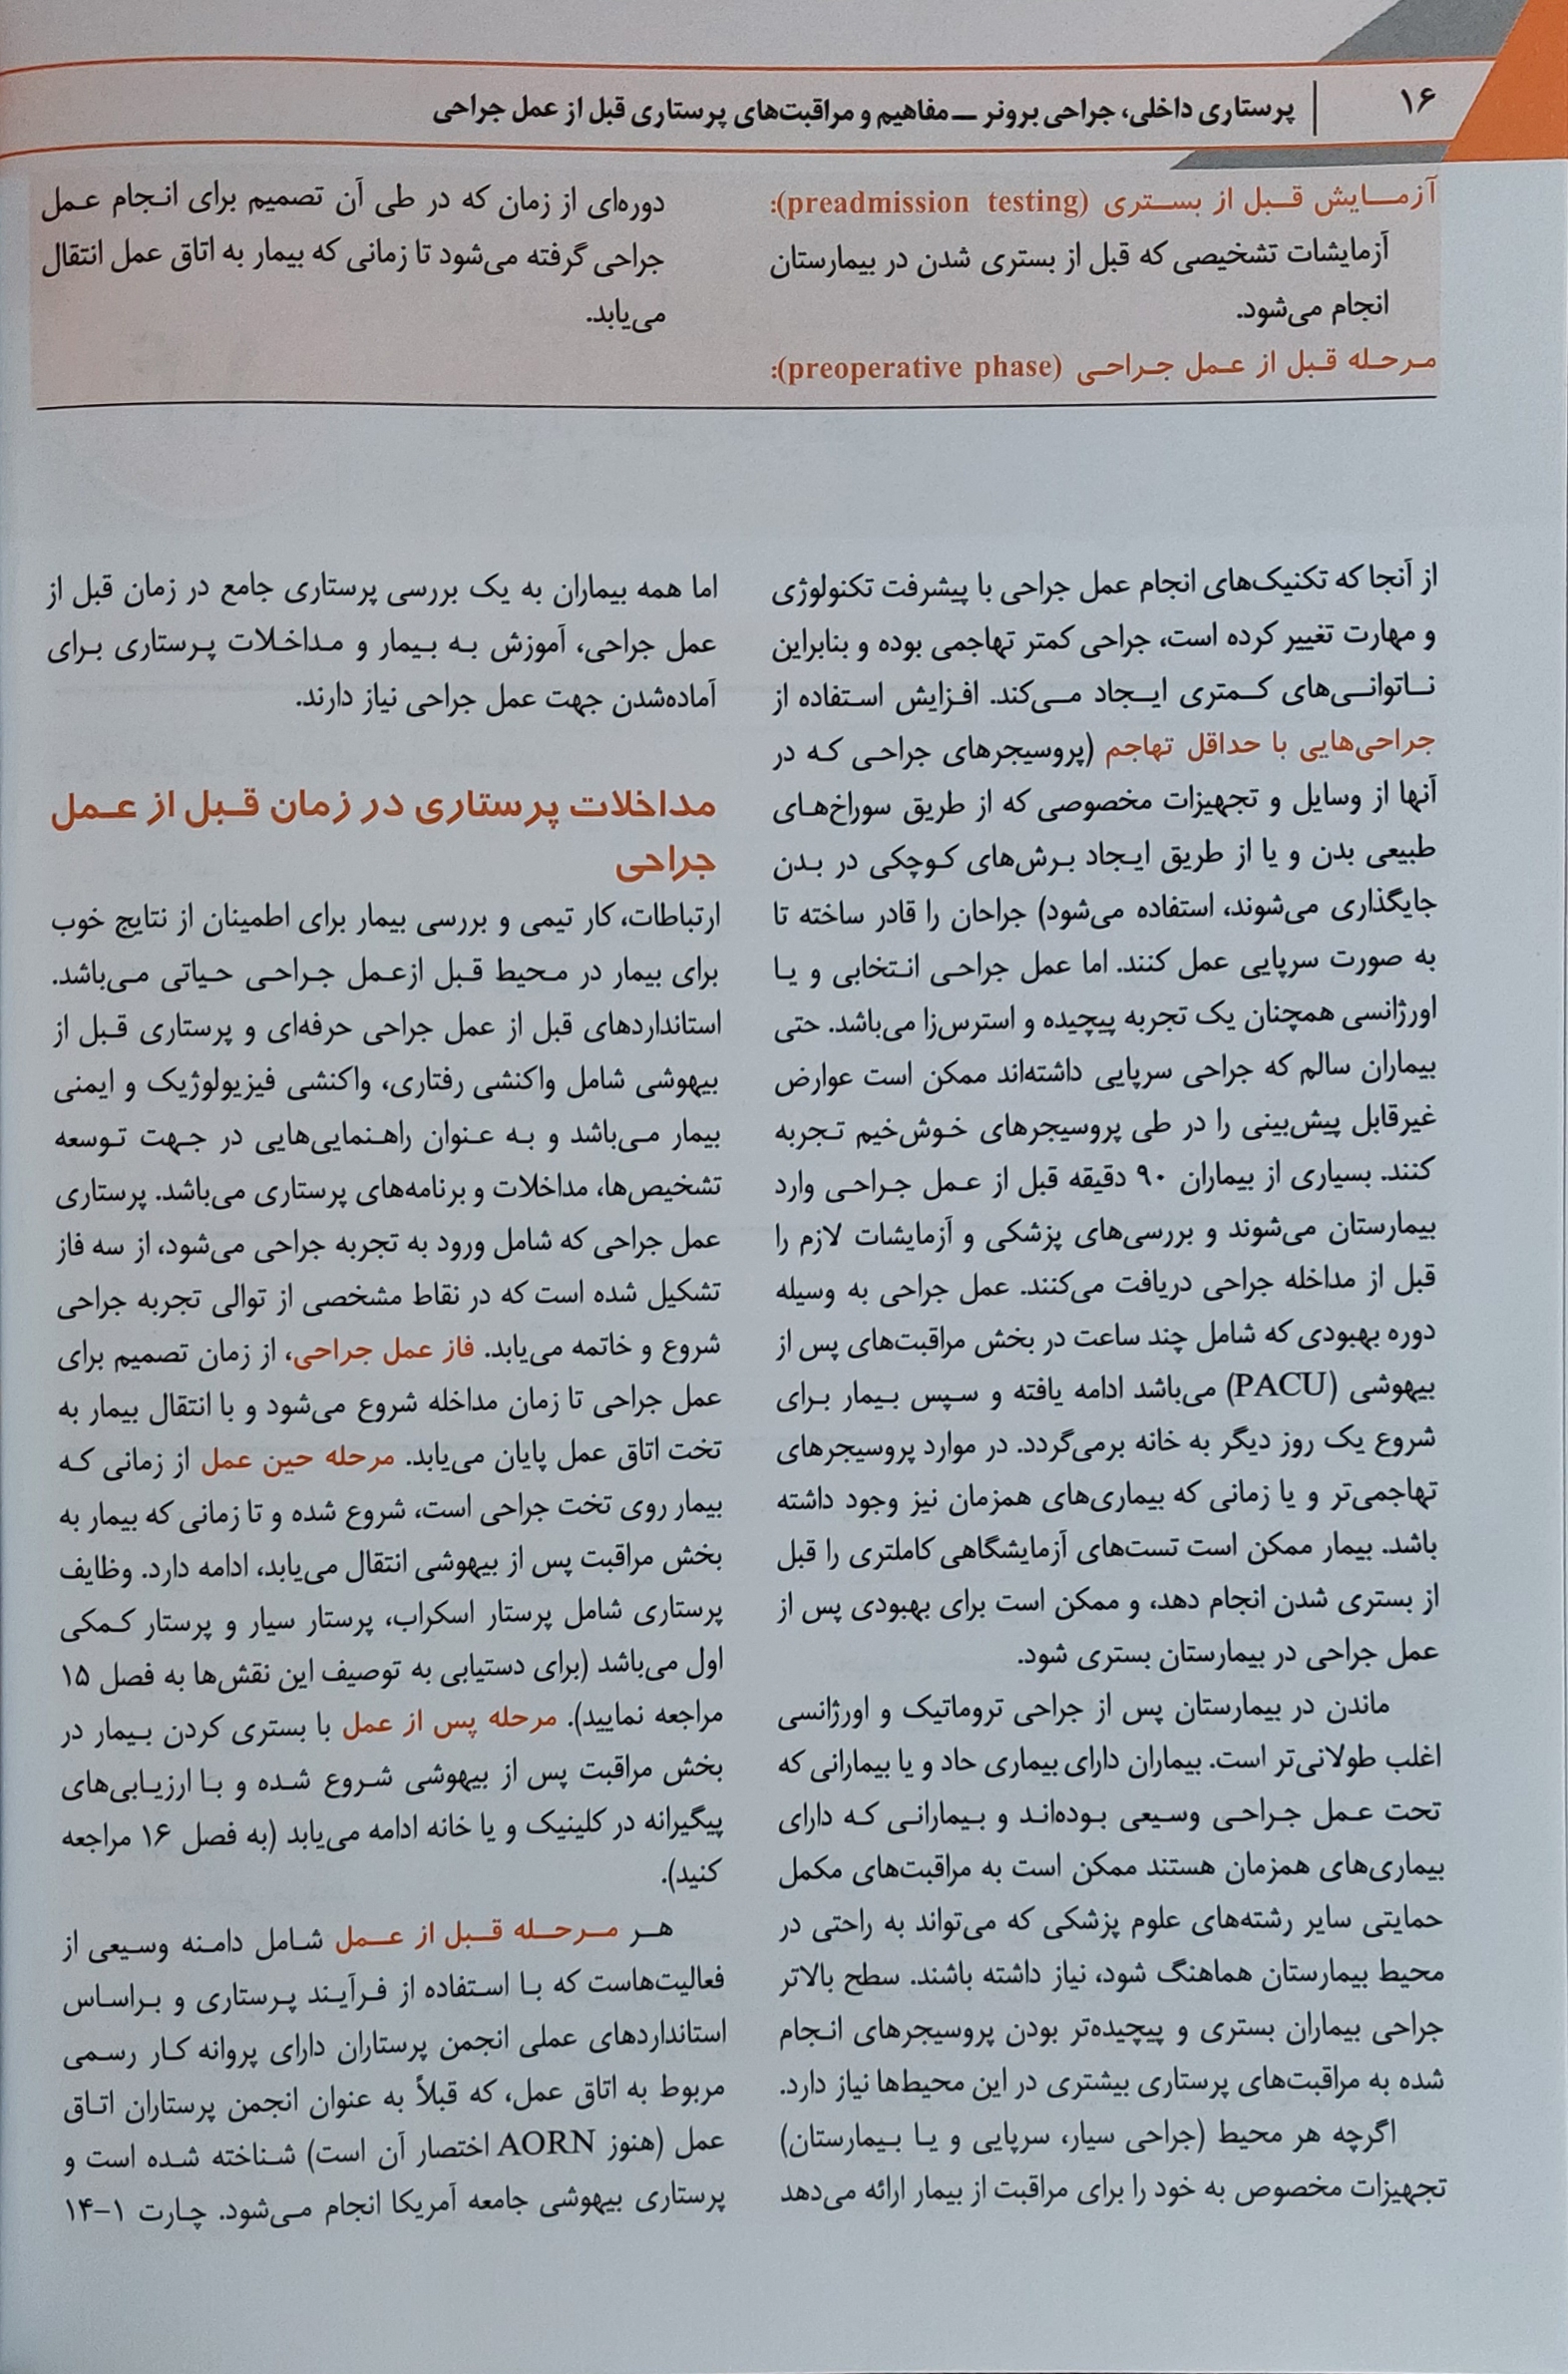 ۱۶
پرستاری داخلی، جراحی برونر ــ مفاهیم و مراقبت‌های پرستاری قبل از عمل جراحی
آزمایش قبل از بستری (preadmission testing):
آزمایشات تشخیصی که قبل از بستری شدن در بیمارستان
انجام می‌شود.
مرحله قبل از عمل جراحی (preoperative phase):
دوره‌ای از زمان که در طی آن تصمیم برای انجام عمل
جراحی گرفته می‌شود تا زمانی که بیمار به اتاق عمل انتقال
می‌یابد.
از آنجا که تکنیک‌های انجام عمل جراحی با پیشرفت تکنولوژی
و مهارت تغییر کرده است، جراحی کمتر تهاجمی بوده و بنابراین
ناتوانی‌های کمتری ایجاد می‌کند. افزایش استفاده از
جراحی‌هایی با حداقل تهاجم (پروسیجرهای جراحی که در
آنها از وسایل و تجهیزات مخصوصی که از طریق سوراخ‌های
طبیعی بدن و یا از طریق ایجاد برش‌های کوچکی در بدن
جایگذاری می‌شوند، استفاده می‌شود) جراحان را قادر ساخته تا
به صورت سرپایی عمل کنند. اما عمل جراحی انتخابی و یا
اورژانسی همچنان یک تجربه پیچیده و استرس‌زا می‌باشد. حتی
بیماران سالم که جراحی سرپایی داشته‌اند ممکن است عوارض
غیرقابل پیش‌بینی را در طی پروسیجرهای خوش‌خیم تجربه
کنند. بسیاری از بیماران ۹۰ دقیقه قبل از عمل جراحی وارد
بیمارستان می‌شوند و بررسی‌های پزشکی و آزمایشات لازم را
قبل از مداخله جراحی دریافت می‌کنند. عمل جراحی به وسیله
دوره بهبودی که شامل چند ساعت در بخش مراقبت‌های پس از
بیهوشی (PACU) می‌باشد ادامه یافته و سپس بیمار برای
شروع یک روز دیگر به خانه برمی‌گردد. در موارد پروسیجرهای
تهاجمی‌تر و یا زمانی که بیماری‌های همزمان نیز وجود داشته
باشد. بیمار ممکن است تست‌های آزمایشگاهی کاملتری را قبل
از بستری شدن انجام دهد، و ممکن است برای بهبودی پس از
عمل جراحی در بیمارستان بستری شود.
ماندن در بیمارستان پس از جراحی تروماتیک و اورژانسی
اغلب طولانی‌تر است. بیماران دارای بیماری حاد و یا بیمارانی که
تحت عمل جراحی وسیعی بوده‌اند و بیمارانی که دارای
بیماری‌های همزمان هستند ممکن است به مراقبت‌های مکمل
حمایتی سایر رشته‌های علوم پزشکی که می‌تواند به راحتی در
محیط بیمارستان هماهنگ شود، نیاز داشته باشند. سطح بالاتر
جراحی بیماران بستری و پیچیده‌تر بودن پروسیجرهای انجام
شده به مراقبت‌های پرستاری بیشتری در این محیط‌ها نیاز دارد.
اگرچه هر محیط (جراحی سیار، سرپایی و یا بیمارستان)
تجهیزات مخصوص به خود را برای مراقبت از بیمار ارائه می‌دهد
اما همه بیماران به یک بررسی پرستاری جامع در زمان قبل از
عمل جراحی، آموزش به بیمار و مداخلات پرستاری برای
آماده‌شدن جهت عمل جراحی نیاز دارند.
مداخلات پرستاری در زمان قبل از عمل
جراحی
ارتباطات، کار تیمی و بررسی بیمار برای اطمینان از نتایج خوب
برای بیمار در محیط قبل ازعمل جراحی حیاتی می‌باشد.
استانداردهای قبل از عمل جراحی حرفه‌ای و پرستاری قبل از
بیهوشی شامل واکنشی رفتاری، واکنشی فیزیولوژیک و ایمنی
بیمار می‌باشد و به عنوان راهنمایی‌هایی در جهت توسعه
تشخیص‌ها، مداخلات و برنامه‌های پرستاری می‌باشد. پرستاری
عمل جراحی که شامل ورود به تجربه جراحی می‌شود، از سه فاز
تشکیل شده است که در نقاط مشخصی از توالی تجربه جراحی
شروع و خاتمه می‌یابد. فاز عمل جراحی، از زمان تصمیم برای
عمل جراحی تا زمان مداخله شروع می‌شود و با انتقال بیمار به
تخت اتاق عمل پایان می‌یابد. مرحله حین عمل از زمانی که
بیمار روی تخت جراحی است، شروع شده و تا زمانی که بیمار به
بخش مراقبت پس از بیهوشی انتقال می‌یابد، ادامه دارد. وظایف
پرستاری شامل پرستار اسکراب، پرستار سیار و پرستار کمکی
اول می‌باشد (برای دستیابی به توصیف این نقش‌ها به فصل ۱۵
مراجعه نمایید). مرحله پس از عمل با بستری کردن بیمار در
بخش مراقبت پس از بیهوشی شروع شده و با ارزیابی‌های
پیگیرانه در کلینیک و یا خانه ادامه می‌یابد (به فصل ۱۶ مراجعه
کنید).
هر مرحله قبل از عمل شامل دامنه وسیعی از
فعالیت‌هاست که با استفاده از فرآیند پرستاری و براساس
استانداردهای عملی انجمن پرستاران دارای پروانه کار رسمی
مربوط به اتاق عمل، که قبلاً به عنوان انجمن پرستاران اتاق
عمل (هنوز AORN اختصار آن است) شناخته شده است و
پرستاری بیهوشی جامعه آمریکا انجام می‌شود. چارت ۱-۱۴